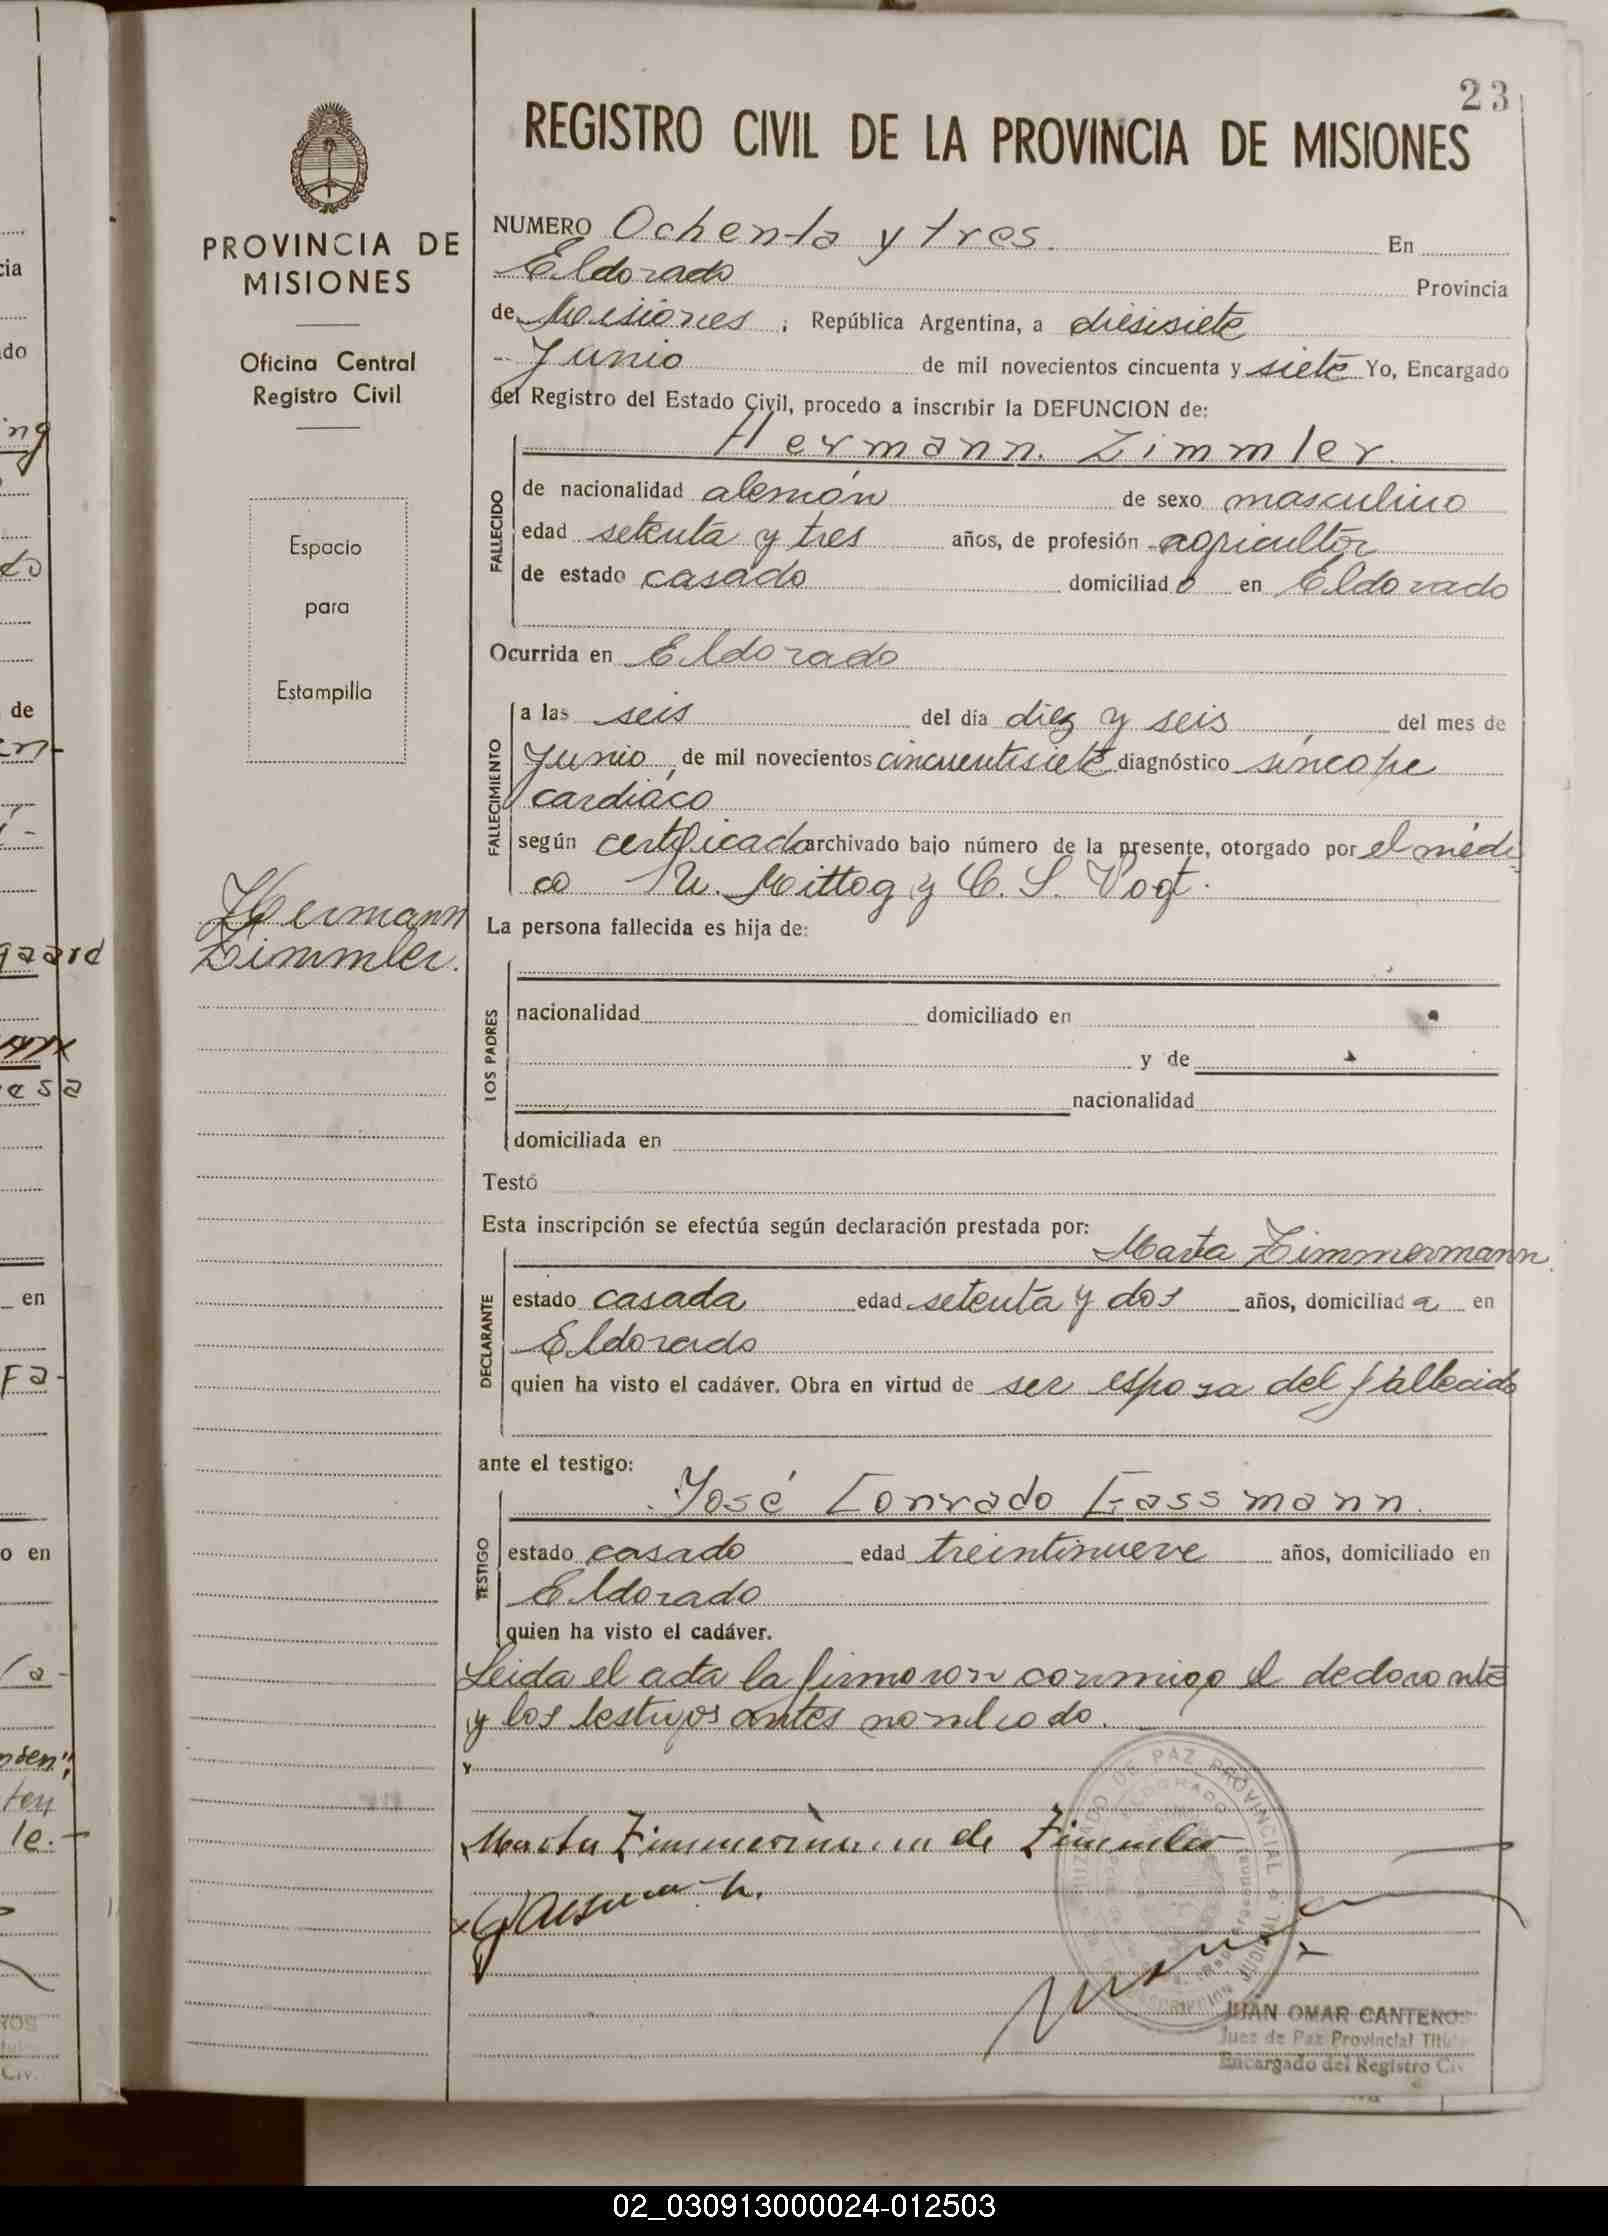 23
REGISTRO CIVIL DE LA PROVINCIA DE MISIONES
PROVINCIA DE
MISIONES
Oficina Central
Registro Civil
Espacio
para
Estampilla
Hermann
Zimmler.
NUMERO Ochenta y tres. En
Eldorado Provincia
de Misiones ; República Argentina, a diesisiete
Junio de mil novecientos cincuenta y siete Yo, Encargado
del Registro del Estado Civil, procedo a inscribir la DEFUNCION de:
Hermann. Zimmler.
FALLECIDO
de nacionalidad alemán de sexo masculino
edad setenta y tres años, de profesión agricultor
de estado casado domiciliado en Eldorado
Ocurrida en Eldorado
FALLECIMIENTO
a las seis del día diez y seis del mes de
Junio, de mil novecientos cincuentisiete diagnóstico síncope
cardiáco
según certificado archivado bajo número de la presente, otorgado por el médi-
co Mittag y C. S. Vogt.
La persona fallecida es hija de:
LOS PADRES
nacionalidad domiciliado en
y de
nacionalidad
domiciliada en
Testó
Esta inscripción se efectúa según declaración prestada por:
Marta Zimmermann.
DECLARANTE
estado casada edad setenta y dos años, domiciliada en
Eldorado
quien ha visto el cadáver. Obra en virtud de ser esposa del fallecido
ante el testigo:
José Conrado Gassmann.
TESTIGO
estado casado edad treintinueve años, domiciliado en
Eldorado
quien ha visto el cadáver.
Leida el acta la firmaron conmigo el declarante
y los testigos antes nombrado.
Marta Zimmermann de Zimmler
JUZGADO DE PAZ PROVINCIAL
ELDORADO
JUAN OMAR CANTEROS
Juez de Paz Provincial Titu
Encargado del Registro Civ
02_030913000024-012503